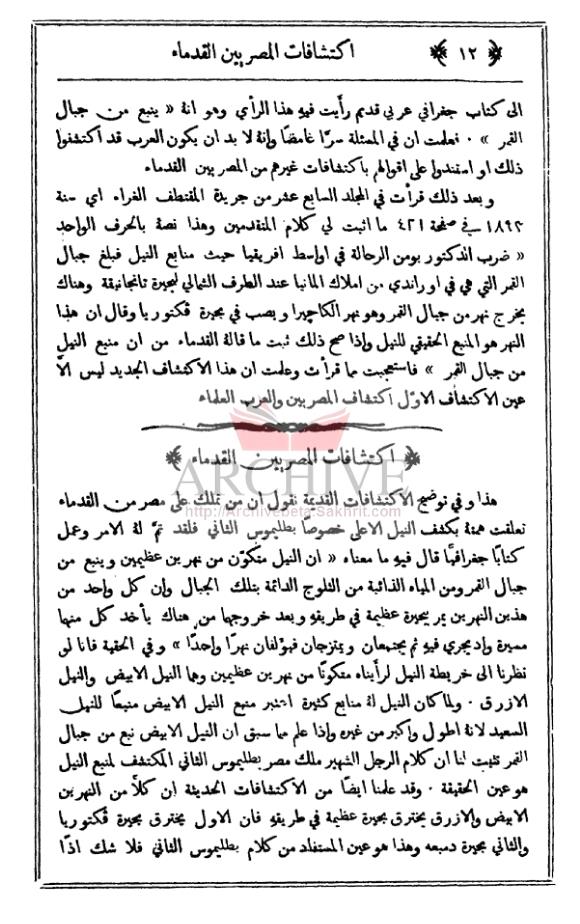 ﴿ ١٢ ﴾ اكتشافات المصريين القدماء
الى كتاب جغرافي عربي قديم رأيت فيهِ هذا الرأي وهو انهُ « ينبع من جبال
القمر » ٠ فعلمت ان في المسئلة سرًّا غامضًا وانهُ لا بد ان يكون العرب قد اكتشفوا
ذلك او استندوا على اقوالهم باكتشافات غيرهم من المصريين القدماء
وبعد ذلك قرأت في المجلد السابع عشر من جريدة المقتطف الغراء اي سنة
١٨٩٣ في صفحة ٤٢١ ما اثبت لي كلام المتقدمين وهذا نصهُ بالحرف الواحد
« ضرب الدكتور بومن الرحالة في اواسط افريقيا حيث منابع النيل فبلغ جبال
القمر التي هي في اوراندي من املاك المانيا عند الطرف الشمالي لبحيرة تانجانيقة وهناك
يخرج نهر من جبال القمر وهو نهر الكاجيرا ويصب في بحيرة ڤكتوريا وقال ان هذا
النهر هو المنبع الحقيقي للنيل واذا صح ذلك ثبت ما قالهُ القدماء من ان منبع النيل
من جبال القمر » فاستعجبت مما قرأت وعلمت ان هذا الاكتشاف الجديد ليس الّا
عين الاكتشاف الاوّل اكتشاف المصريين والعرب العلماء
﴿ اكتشافات المصريين القدماء ﴾
ARCHIVE
http://Archivebeta.Sakhrit.com
هذا وفي توضيح الاكتشافات القديمة نقول ان من تملك على مصر من القدماء
تعلقت همتهُ بكشف النيل الاعلى خصوصًا بطليموس الثاني فلقد تمّ لهُ الامر وعمل
كتابًا جغرافيًّا قال فيهِ ما معناه « ان النيل متكوّن من نهرين عظيمين وينبع من
جبال القمر ومن المياه الذائبة من الثلوج الدائمة بتلك الجبال وان كل واحد من
هذين النهرين يمر ببحيرة عظيمة في طريقهِ وبعد خروجها من هناك يأخذ كل منها
مسيرهُ وادٍ يجري فيهِ ثم يجتمعان ويمتزجان فيؤلفان نهرًا واحدًا » وفي الحقيقة فانا لو
نظرنا الى خريطة النيل لرأيناه متكونًا من نهرين عظيمين وهما النيل الابيض والنيل
الازرق ٠ ولما كان النيل لهُ منابع كثيرة اعتبر منبع النيل الابيض منبعًا للنيل
السعيد لانهُ اطول واكبر من غيره واذا علم مما سبق ان النيل الابيض نبع من جبال
القمر تثبت لنا ان كلام الرجل الشهير ملك مصر بطليموس الثاني المكتشف لمنبع النيل
هو عين الحقيقة ٠ وقد علمنا ايضًا من الاكتشافات الحديثة ان كلاًّ من النهرين
الابيض والازرق يخترق بحيرة عظيمة في طريقهِ فان الاول يخترق بحيرة ڤكتوريا
والثاني بحيرة دمبعه وهذا هو عين المستفاد من كلام بطليموس الثاني فلا شك اذًا